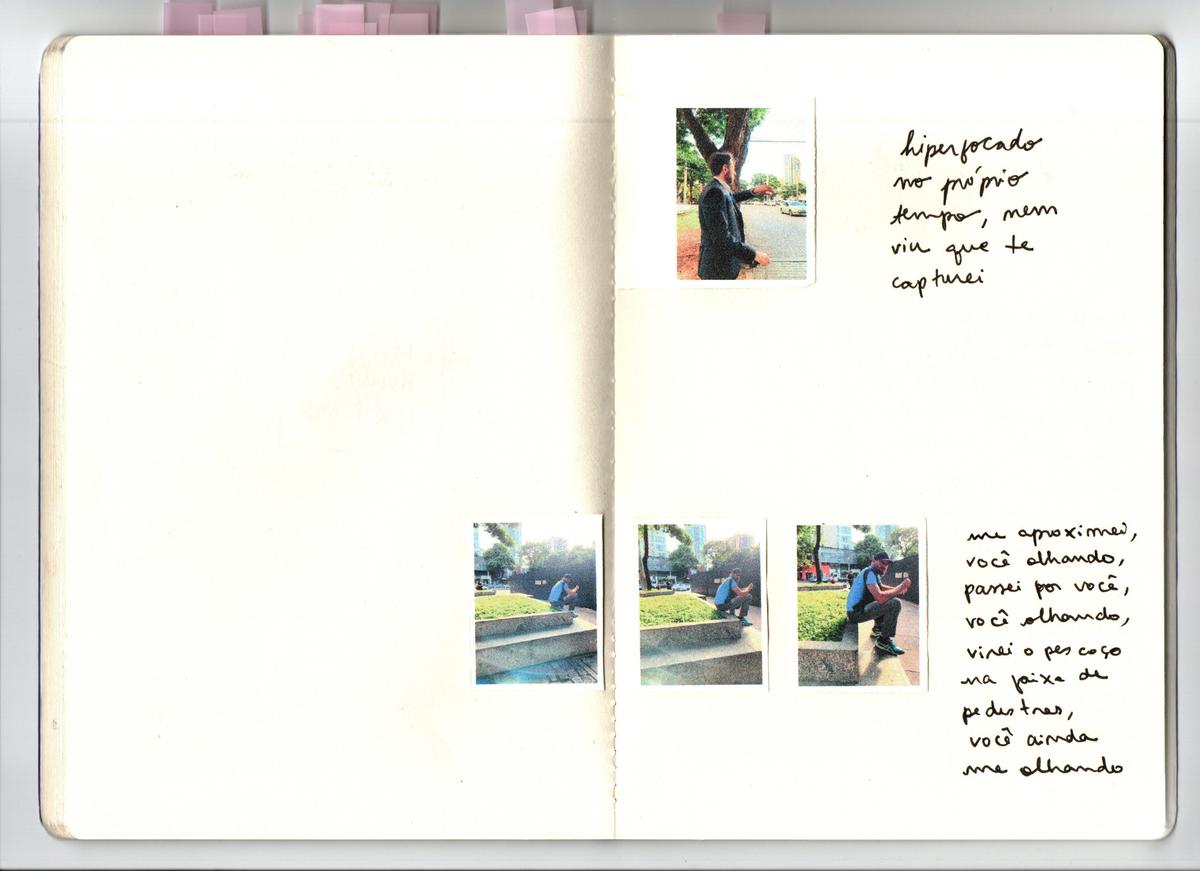 hiperfocado
no próprio
tempo, nem
viu que te
capturei
me aproximei,
você olhando,
passei por você,
você olhando,
virei o pescoço
na faixa de
pedestres,
você ainda
me olhando